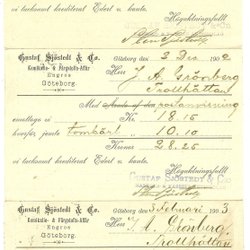 vi tacksamt krediterat Edert v. konto.
Högaktningsfullt
Gustaf Sjöstedt & Co.
Engros
Göteborg.
Göteborg den 2 Dec 1902
Herr J. A. Grönberg
Trollhättan
Med postanvisning
emottaga vi Kr 18.15
härför, jemte tomkärl " 10.10
Kronor 28.25
vi tacksamt krediterat Edert v. konto.
Högaktningsfullt
GUSTAF SJÖSTEDT & Co.
Gustaf Sjöstedt & Co.
Engros
Göteborg.
Göteborg den 3 Februari 1903
Herr J. A. Grönberg,
Trollhättan